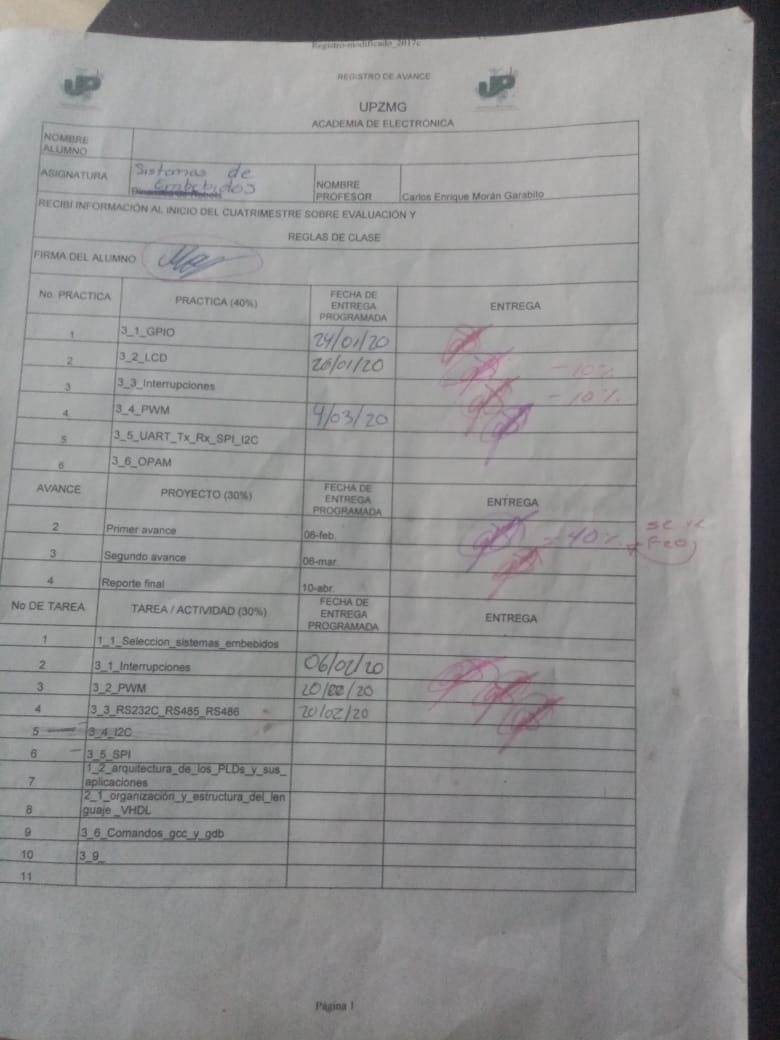 Registro-modificado_2017c
REGISTRO DE AVANCE
UPZMG
ACADEMIA DE ELECTRONICA
NOMBRE ALUMNO
ASIGNATURA Sistemas de Embebidos NOMBRE PROFESOR Carlos Enrique Morán Garabito
RECIBI INFORMACIÓN AL INICIO DEL CUATRIMESTRE SOBRE EVALUACIÓN Y
REGLAS DE CLASE
FIRMA DEL ALUMNO
No. PRACTICA PRACTICA (40%) FECHA DE ENTREGA PROGRAMADA ENTREGA
1 3_1_GPIO 24/01/20
2 3_2_LCD 26/01/20 - 10%
3 3_3_Interrupciones - 10%
4 3_4_PWM 9/03/20
5 3_5_UART_Tx_Rx_SPI_I2C
6 3_6_OPAM
AVANCE PROYECTO (30%) FECHA DE ENTREGA PROGRAMADA ENTREGA
2 Primer avance 06-feb. - 40% se ve feo
3 Segundo avance 06-mar
4 Reporte final 10-abr.
No DE TAREA TAREA / ACTIVIDAD (30%) FECHA DE ENTREGA PROGRAMADA ENTREGA
1 1_1_Seleccion_sistemas_embebidos
2 3_1_Interrupciones 06/02/20
3 3_2_PWM 20/02/20
4 3_3_RS232C_RS485_RS486 20/02/20
5 3_4_I2C
6 3_5_SPI
7 1_2_arquitectura_de_los_PLDs_y_sus_
aplicaciones
8 2_1_organización_y_estructura_del_len
guaje _VHDL
9 3_6_Comandos_gcc_y_gdb
10 3_9_
11
Página 1